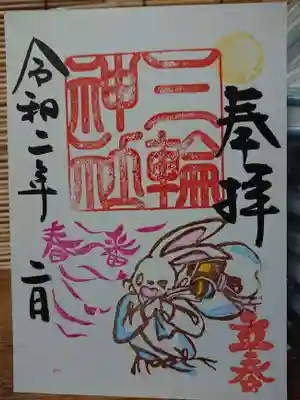 奉拝
三輪
神社
令和二年 二月
春一番
迎春